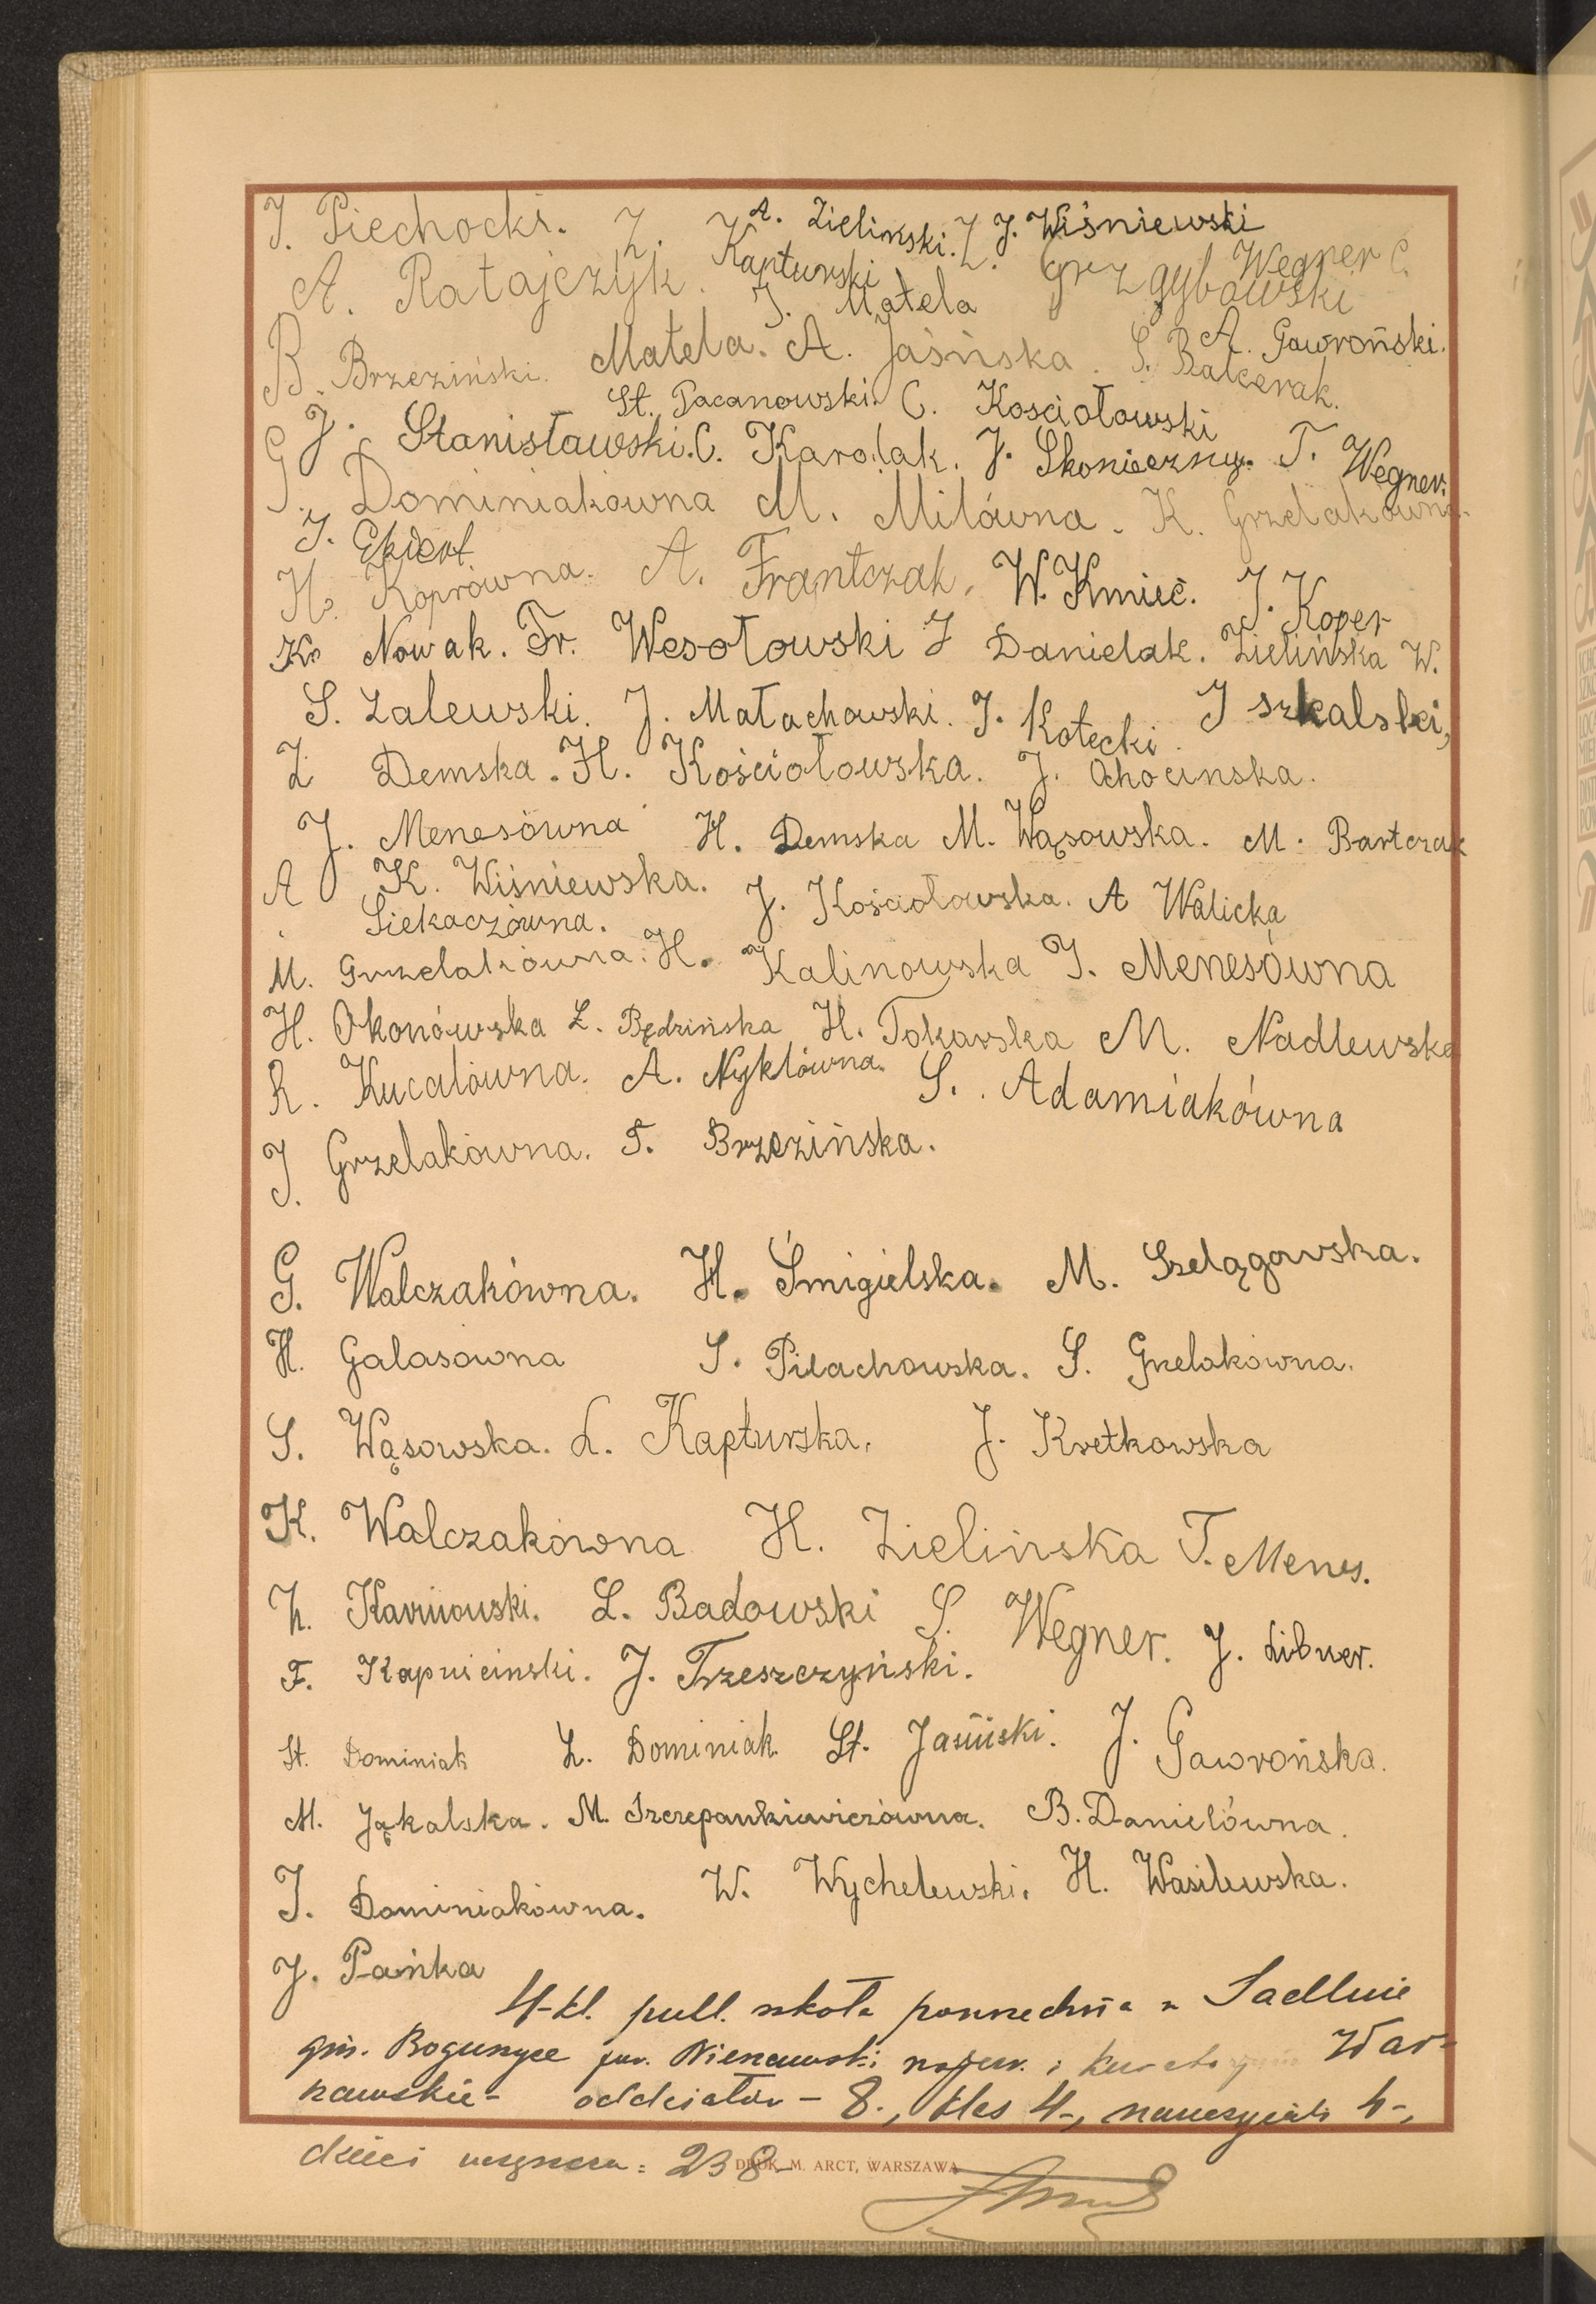 J. Piechocki. Z. Kapturski A. Zieliński. Z. J. Wiśniewski
A. Ratajczyk. J. Matela Grzgybowski Wegner C.
B. Brzeziński. Matela. A. Jaśńska. S. Balcerak. A. Gawroński.
St. Pacanowski. C. Kosciołowski
J. Stanisławski. C. Karolak. J. Skonieczny. T. Wegner.
G. Dominiakówna M. Milówna. K. Grzelakówna.
J. Ekiert
H. Koprówna. A. Frantczak. W. Kmieć. J. Koper
K. Nowak. Fr. Wesołowski J Danielak. Zielińska W.
S. Zalewski. J. Małachowski. J. Kotecki. J Szkalski,
Z Demska. H. Kościołowska. J. Ochocinska.
J. Menesówna H. Demska M. Wąsowska. M. Bartczak
A K. Wiśniewska. J. Kościołowska. A Walicka
Siekaczówna.
M. Grzelakówna. H. Kalinowska J. Menesówna
H. Okonówska Z. Będzińska H. Tokarska M. Nadlewska
R. Kucalówna. A. Nyklówna. S. Adamiakówna
J. Grzelakówna. T. Brzezińska.
G. Walczakówna. H. Śmigielska. M. Szelągowska.
H. Galasówna S. Piłachowska. S. Grzelakówna.
S. Wąsowska. L. Kapturska. J. Kretkowska
K. Walczakówna H. Zielińska T. Menes.
Z. Karnowski. L. Badowski S. Wegner. J. Libner.
F. Kapuscinski. J. Trzeszczyński.
St. Dominiak Z. Dominiak St. Jasiński. J. Gawrońska.
M. Jąkalska. M. Szczepankiewiczówna. B. Danielówna.
J. Dominiakówna. W. Wychelewski. H. Wasilewska.
J. Pańka
4-kl. publ. szkoła powszechna w Sadlnie
gm. Boguszyce pow. Nieszawski wojew. i Kuratorjum War-
szawskie - oddziałów - 8., klas 4-, nauczycieli 4-,
dzieci uczęszcza: 238
DRUK. M. ARCT, WARSZAWA